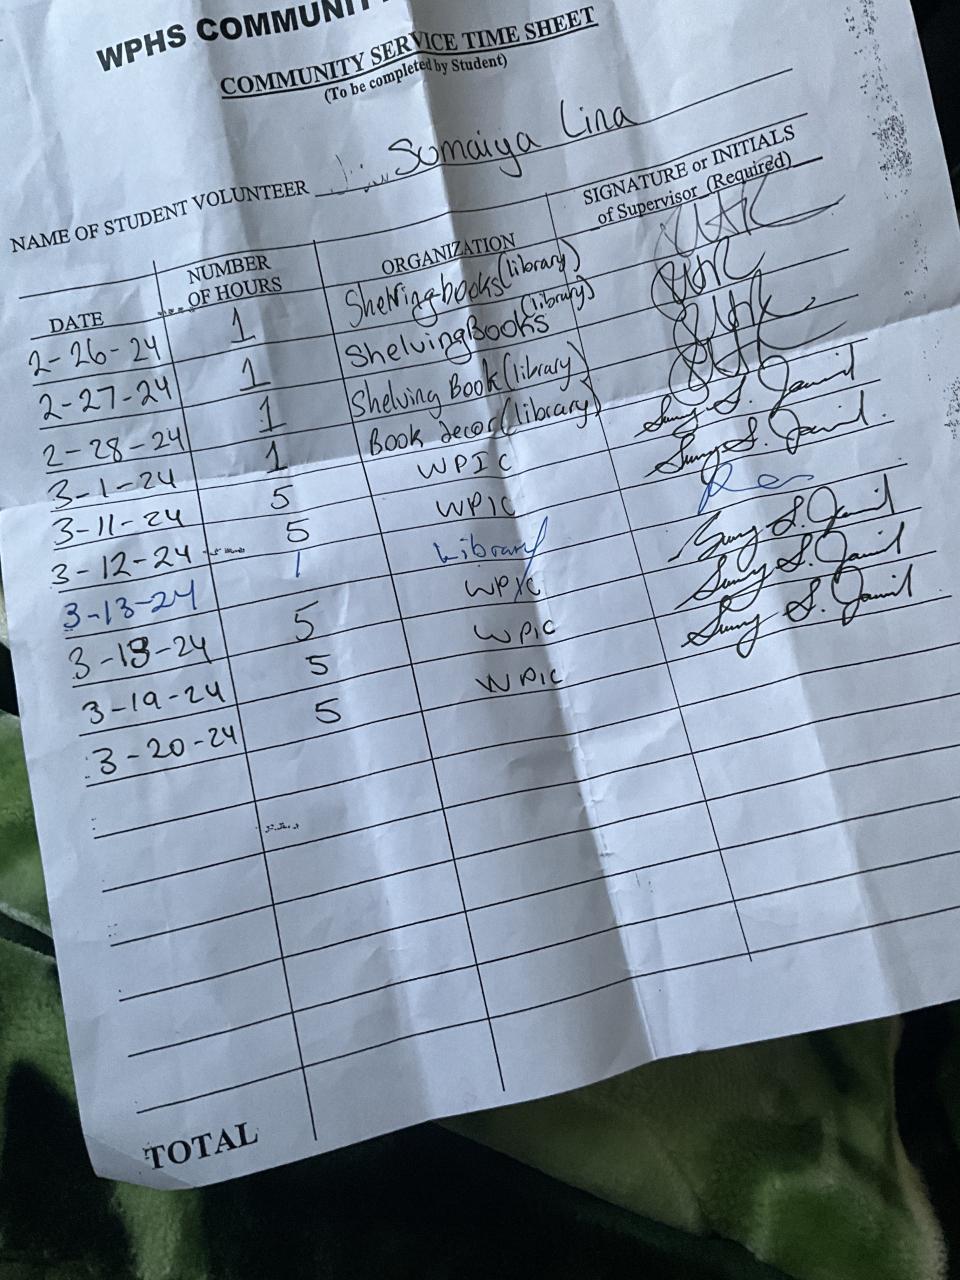 WPHS COMMUNI
COMMUNITY SERVICE TIME SHEET
(To be completed by Student)
NAME OF STUDENT VOLUNTEER Sumaiya Lina
DATE NUMBER OF HOURS ORGANIZATION SIGNATURE or INITIALS of Supervisor (Required)
2-26-24 1 Shelving books (library)
2-27-24 1 Shelving Books (library)
2-28-24 1 Shelving Book (library)
3-1-24 1 Book decor (library)
3-11-24 5 WPIC Suny S. Jamil
3-12-24 5 WPIC Suny S. Jamil
3-13-24 1 Library
3-18-24 5 WPIC Suny S. Jamil
3-19-24 5 WPIC Suny S. Jamil
3-20-24 5 WPIC Suny S. Jamil
TOTAL